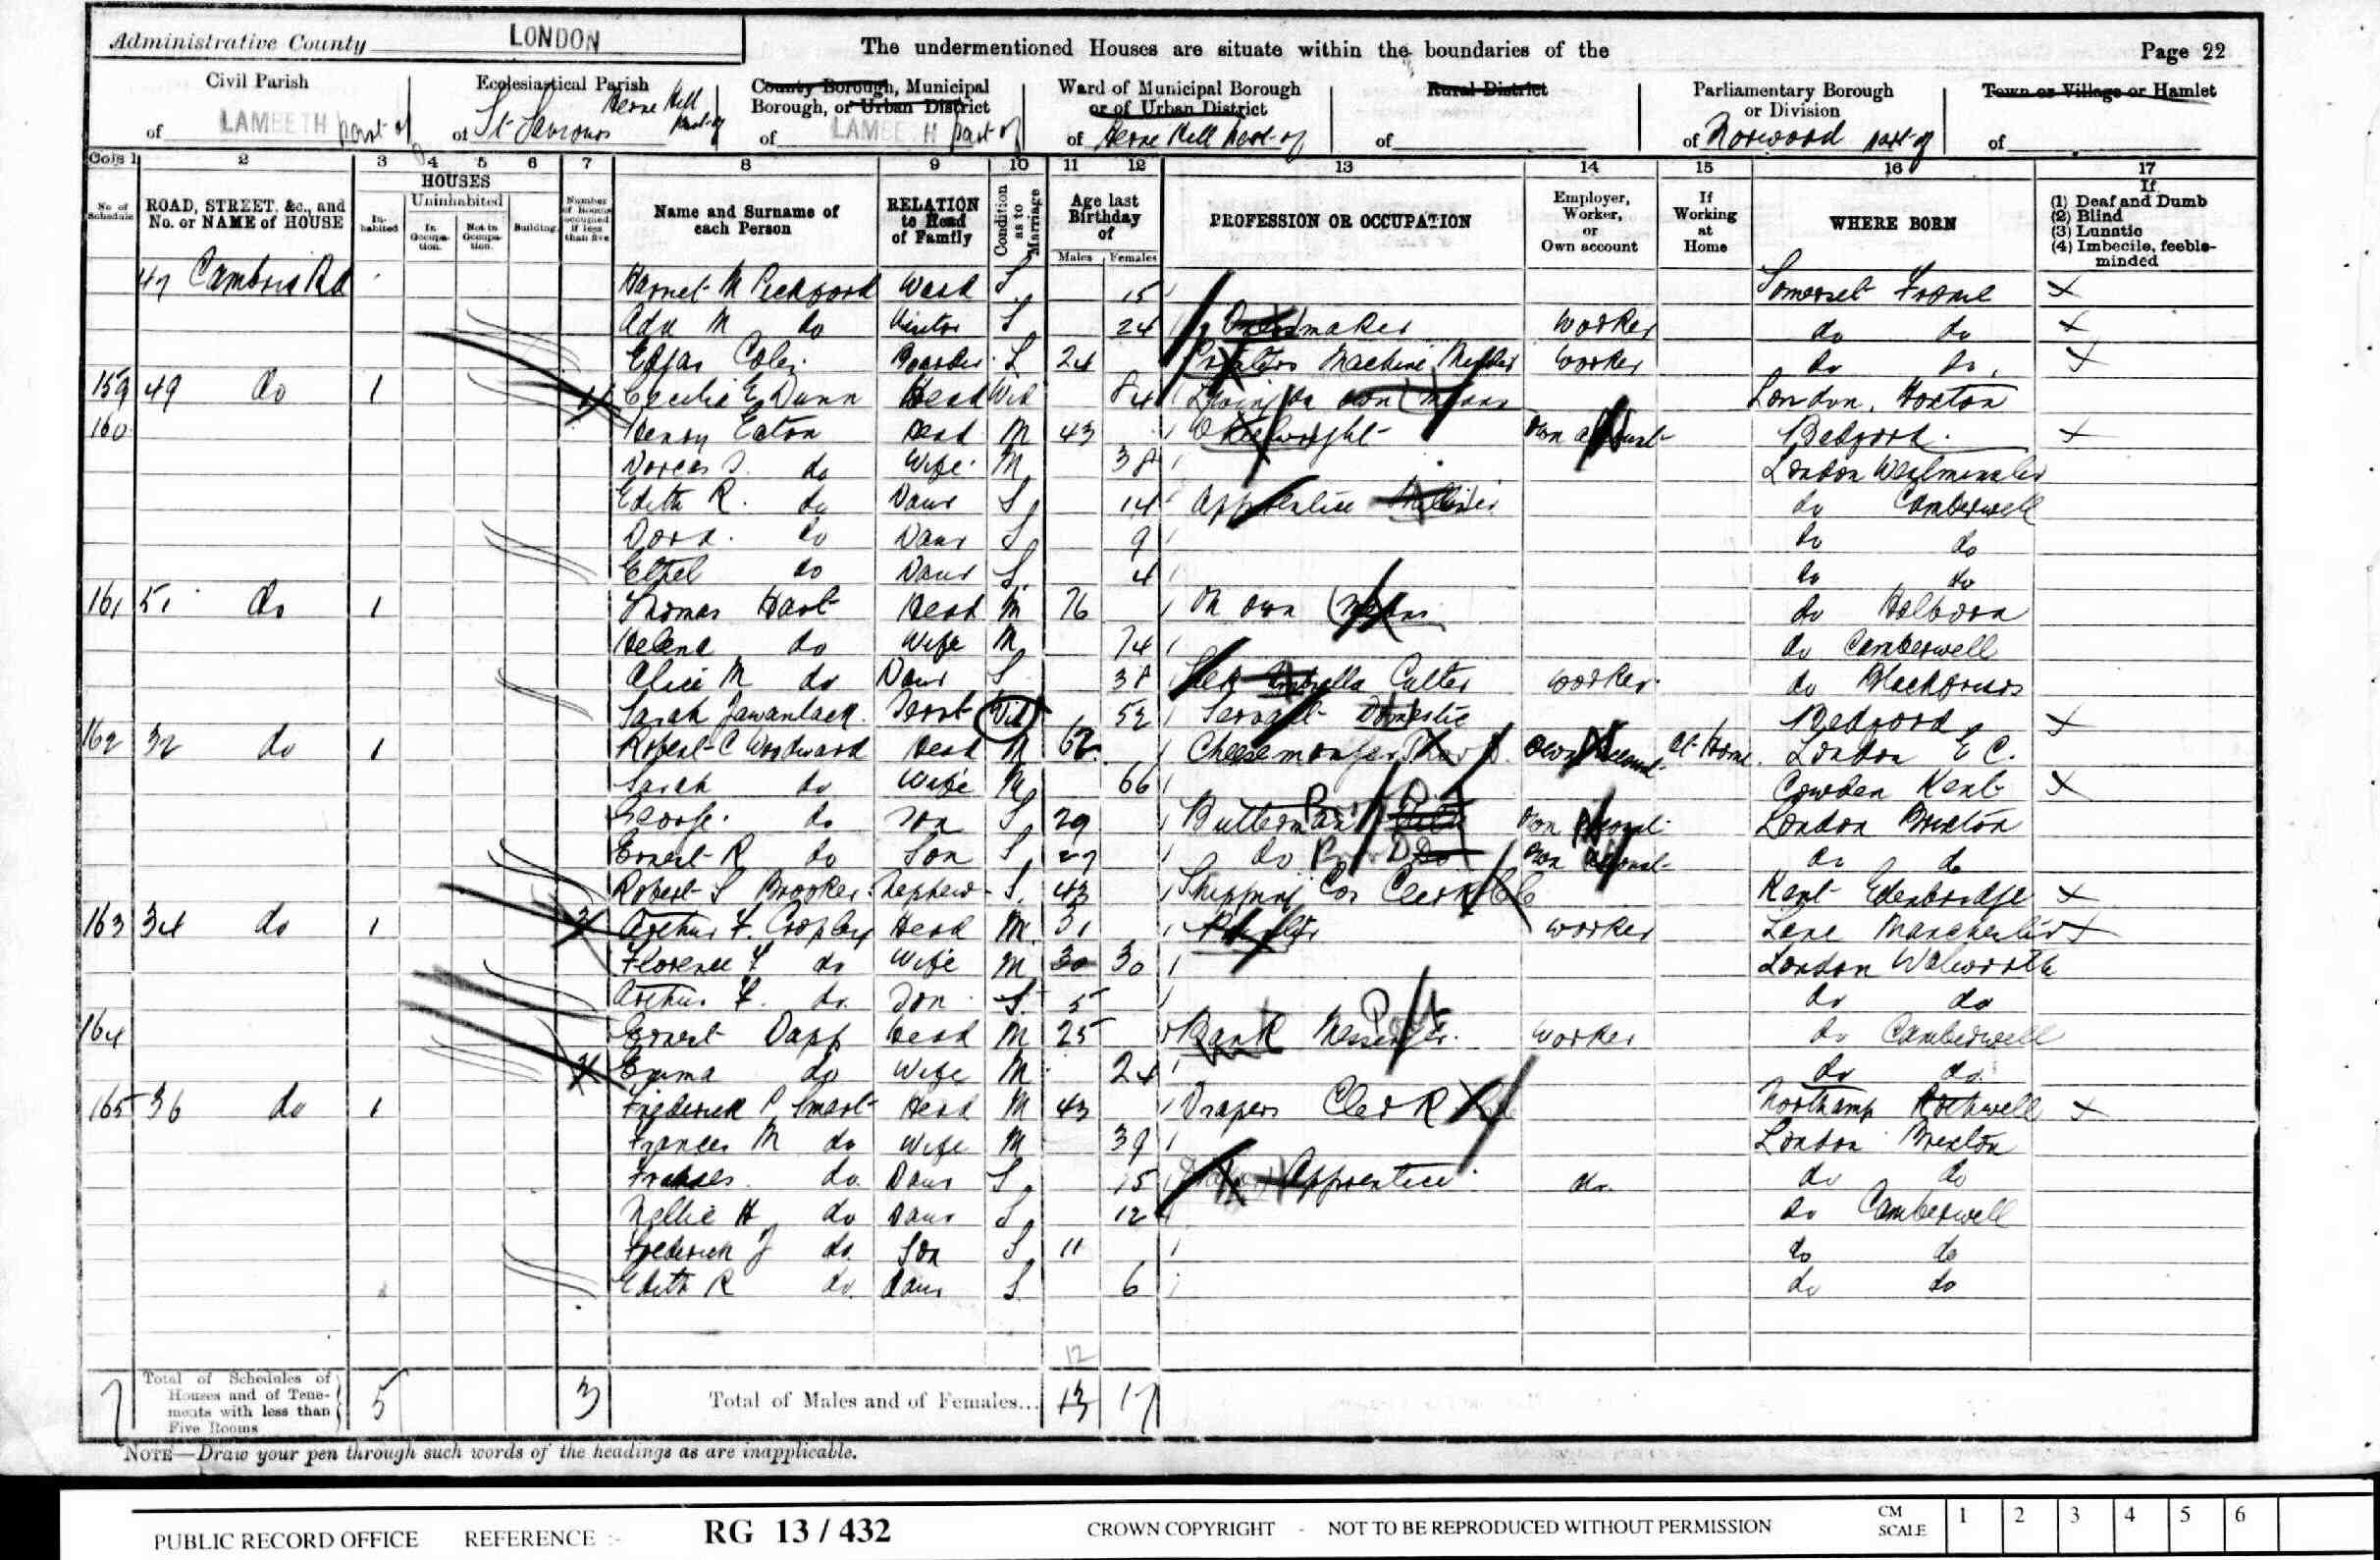 Administrative County LONDON The undermentioned Houses are situate within the boundaries of the Page 22
Civil Parish of LAMBETH part of
Ecclesiastical Parish of St Saviours Herne Hill part of
County Borough, Municipal Borough, or Urban District of LAMBETH part of
Ward of Municipal Borough or of Urban District of Herne Hill part of
Rural District of
Parliamentary Borough or Division of Norwood part of
Town or Village or Hamlet of
Cols 1 2 3 4 5 6 7 8 9 10 11 12 13 14 15 16 17
No of Schedule
ROAD, STREET, &c., and No. or NAME of HOUSE
HOUSES
Inhabited
Uninhabited
In Occupation.
Not in Occupation.
Building.
Number of Rooms occupied if less than five
Name and Surname of each Person
RELATION to Head of Family
Condition as to Marriage
Age last Birthday of
Males Females
PROFESSION OR OCCUPATION
Employer, Worker, or Own account
If Working at Home
WHERE BORN
If
(1) Deaf and Dumb
(2) Blind
(3) Lunatic
(4) Imbecile, feeble-minded
47 Cambria Rd Harriet M Pickford Ward S 15 Somerset Frome
Ada M do Visitor S 24 Dressmaker Worker do do
Edgar Coles Boarder S 24 Printers Machine Minder Worker do do
159 49 do 1 4 Cecilia E Dunn Head Wid 84 Living on own means London, Hoxton
160 Henry Eaton Head M 43 Wheelwright Own account Bedford
Dorcas S. do Wife M 38 London Westminster
Edith R. do Daur S 14 Apprentice Milliner do Camberwell
Dora do Daur S 9 do do
Ethel do Daur S 4 do do
161 51 do 1 Thomas Hart Head M 76 On own means do Holborn
Helena do Wife M 74 do Camberwell
Alice M do Daur S 38 Silk Umbrella Cutter Worker do Blackfriars
Sarah Servt Wid 52 Servant Domestic Bedford
162 32 do 1 Robert C Woodward Head M 62 Cheesemonger Own account At Home London E C.
Sarah do Wife M 66 Cowden Kent
George do Son S 29 Butterman Own account London Brixton
Ernest R do Son S 27 do Own account do do
Robert S Brooker Nephew S 43 Shipping Cos Clerk Kent Edenbridge
163 34 do 1 3 Arthur F. Cropley Head M 31 Printer Worker Lanc Manchester
Florence F do Wife M 30 30 London Walworth
Arthur F. do Son S 5 do do
164 Ernest Dapp Head M 25 Bank Messenger Worker do Camberwell
Emma do Wife M 24 do do
165 36 do 1 Frederick P Smart Head M 43 Drapers Clerk Northamp Rothwell
Frances M do Wife M 39 London Brixton
Frances do Daur S 15 Apprentice do do do
Nellie H do Daur S 12 do Camberwell
Frederick J do Son S 11 do do
Edith R do Daur S 6 do do
12
7 Total of Schedules of Houses and of Tenements with less than Five Rooms 5 3 Total of Males and of Females... 13 17
NOTE—Draw your pen through such words of the headings as are inapplicable.
PUBLIC RECORD OFFICE REFERENCE :- RG 13 / 432 CROWN COPYRIGHT - NOT TO BE REPRODUCED WITHOUT PERMISSION CM SCALE 1 2 3 4 5 6